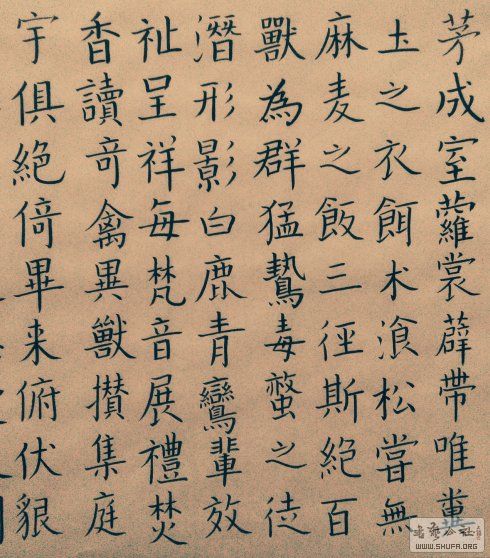 茅成室蘿裳薜帶唯糞
圡之衣餌术湌松嘗無
麻麦之飯三徑斯絕百
獸為群猛鷙毒螫之徒
潛形影白鹿青鸞輩效
祉呈祥每梵音展禮焚
香讀奇禽異獸攅集庭
宇俱絕倚畢来俯伏貇
WWW.SHUFA.ORG